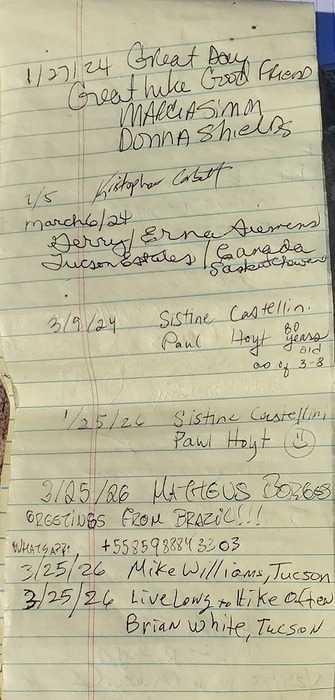 1/27/24 Great Day
Great hike Good Friend
MARCIA SIMM
DONNA Shields
2/5 Kristopher Corbett
March 6/24
Gerry / Erna Siemens
Tucson Estates / Canada
Saskatchewan
3/9/24 Sistine Castellini
Paul Hoyt 80
years
old
as of 3-8
1/25/26 Sistine Castellini
Paul Hoyt ☺
3/25/26 MATHEUS BORGES
GREETINGS FROM BRAZIL!!!
WHATSAPP: +5585988843303
3/25/26 Mike Williams, Tucson
3/25/26 Live Long & Hike Often
Brian White, Tucson